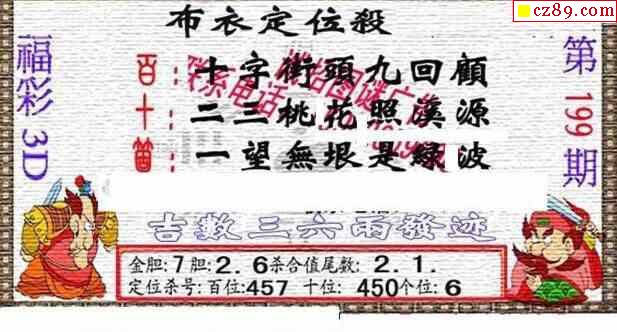 cz89.com
布衣定位殺
福彩3D
第199期
百：十字街頭九回顧
十：二三桃花照溪源
個：一望無垠是綠波
吉数三六雨發迹
金胆:7胆:2.6杀合值尾数:2.1.
定位杀号:百位:457 十位: 450个位:6